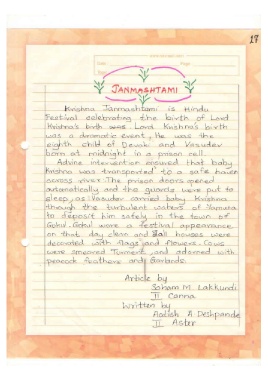 17
JANMASHTAMI
Krishna Janmashtami is Hindu
Festival celebrating the birth of Lord
Krishna's birth was Lord Krishna's birth
was a dramatic event, He was the
eighth child of Devaki and Vasudev
born at midnight in a prison cell.
Advine intervention ensured that baby
Krishna was transported to a safe haven
across river. The prison doors opened
automatically and the guards were put to
sleep, as Vasudev carried baby Krishna
through the turbulent waters of Yamuna
to deposit him safely in the town of
Gokul. Gokul wore a festival appearance
on that day clean and houses were
decorated with flags and flowers. Cows
were smeared Turmeric and adorned with
peacock feathers and Garlands.
Article by
Soham M. Lakkundi
II Canna
Written by
Aalish A Deshpande
II Aster